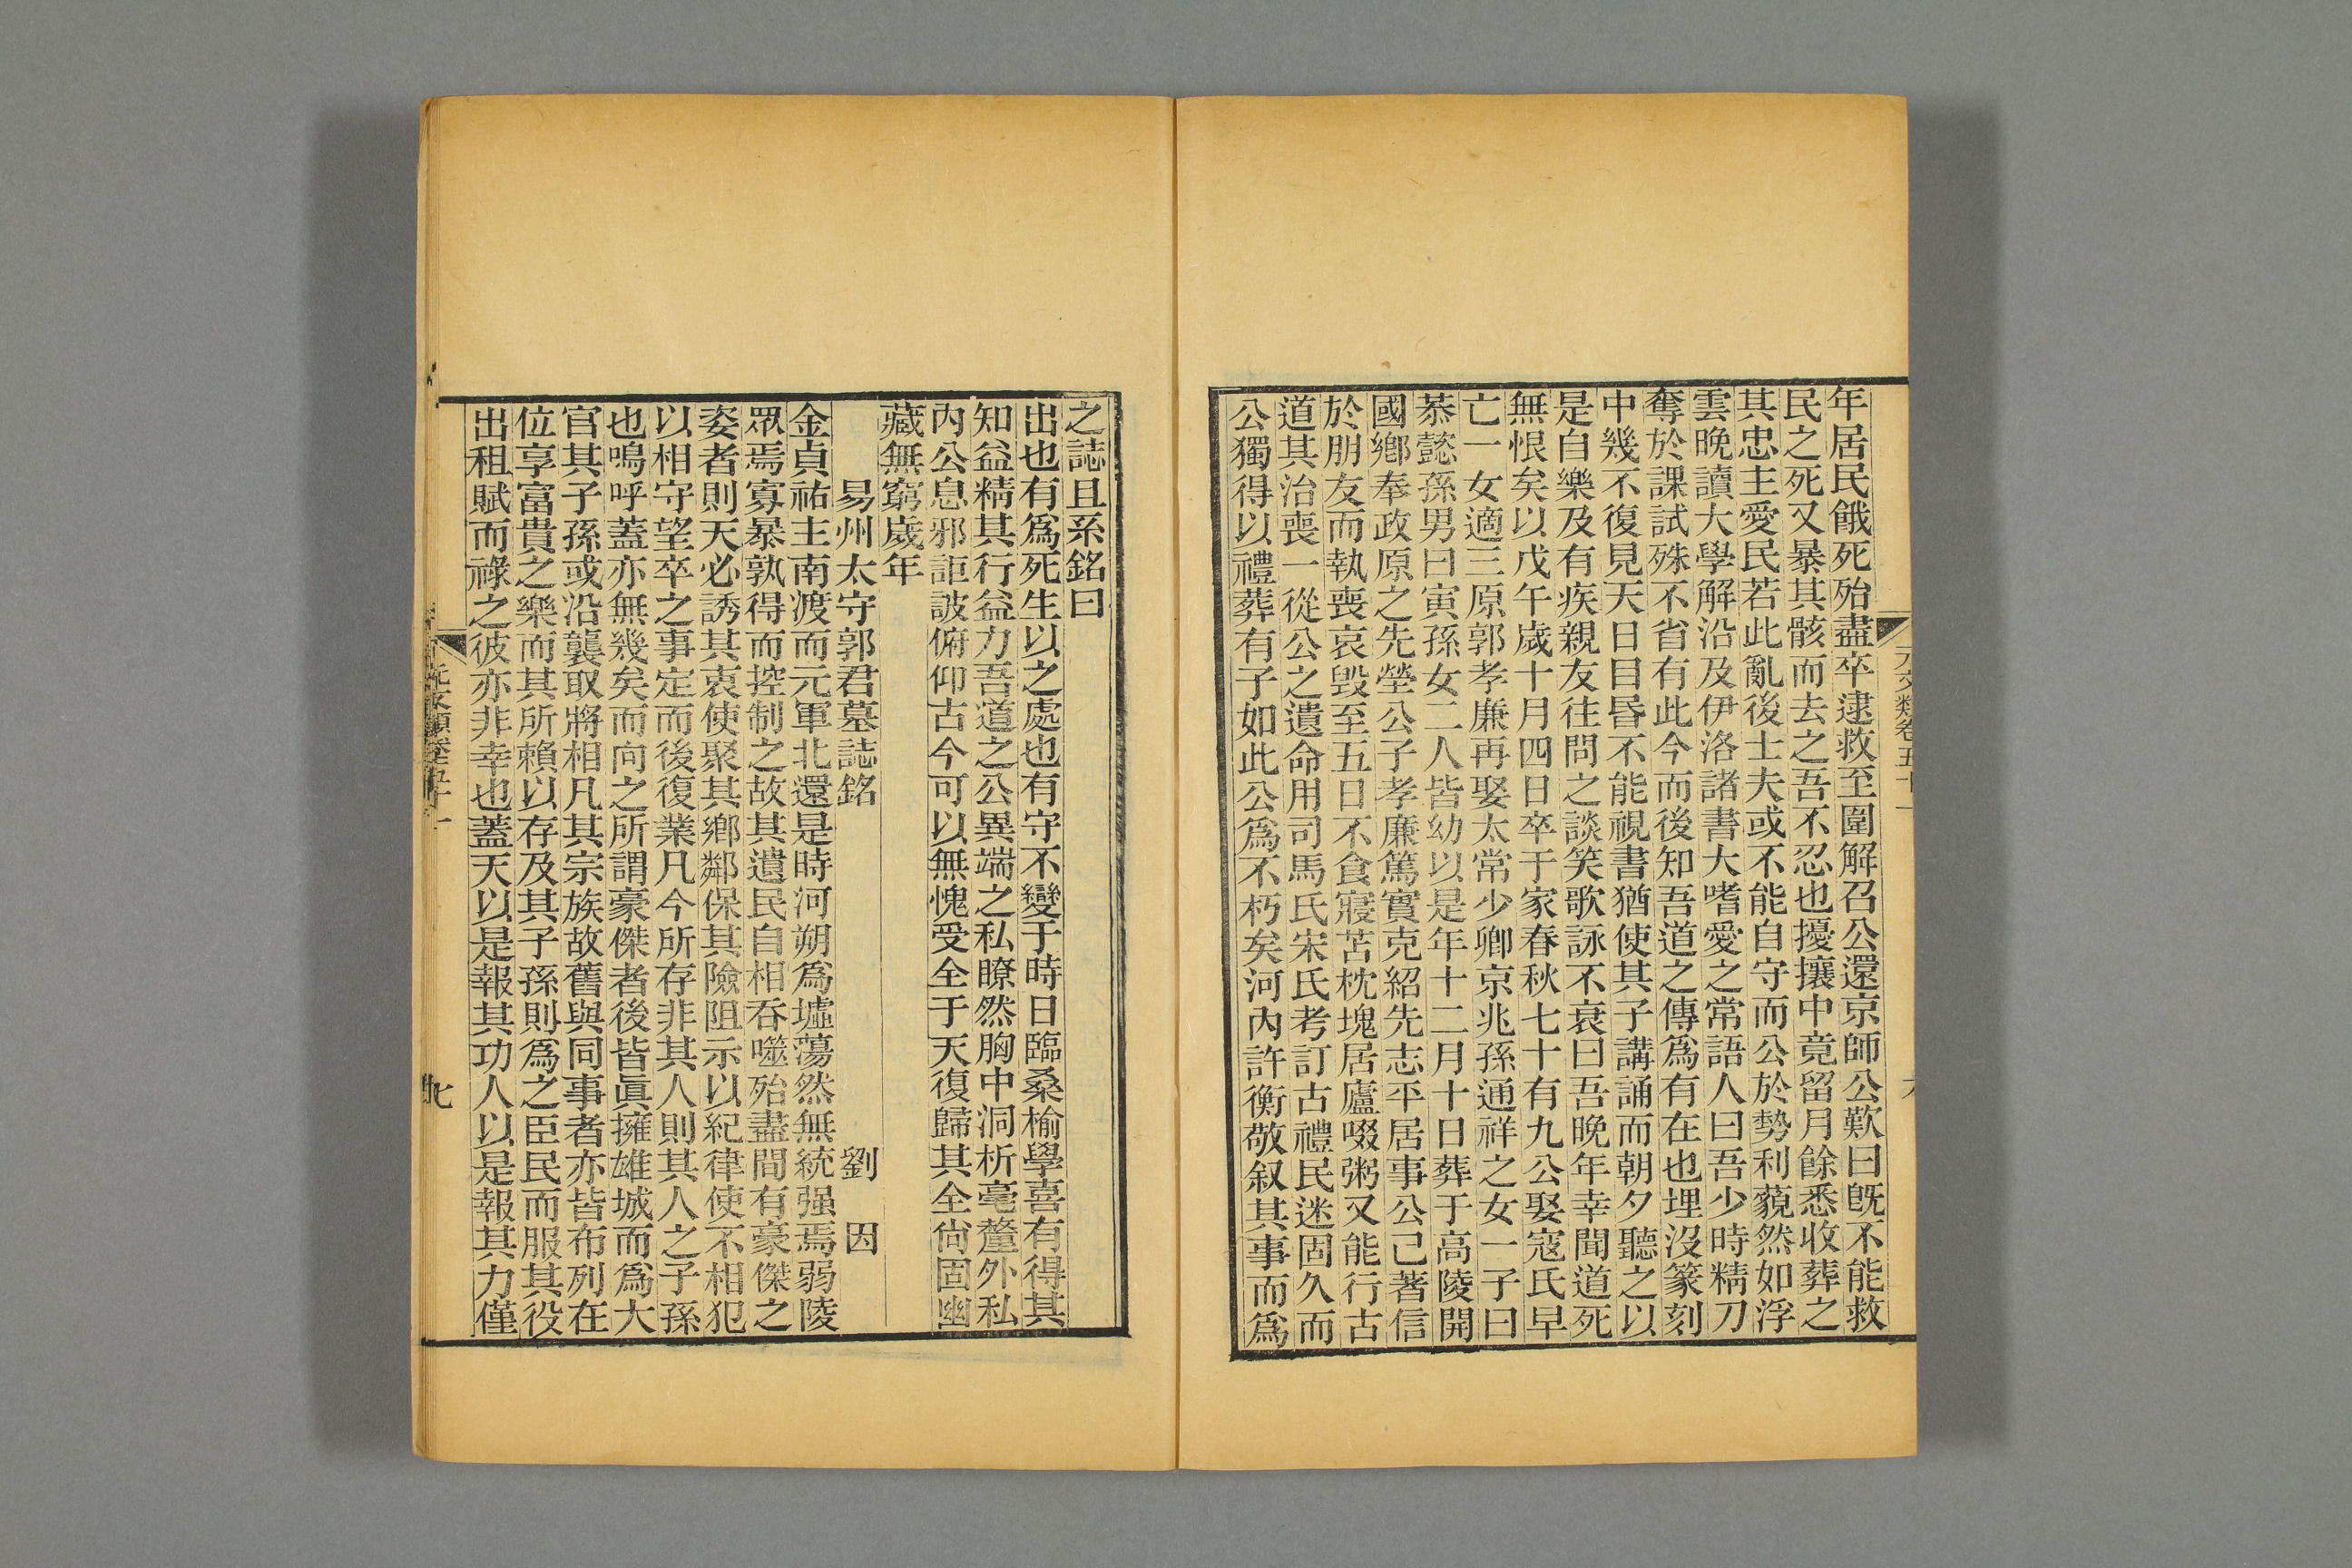 元文類卷五十一
年居民餓死殆盡卒逮救至圍解召公還京師公歎曰旣不能救
民之死又暴其骸而去之吾不忍也擾攘中竟留月餘悉收葬之
其忠主愛民若此亂後士夫或不能自守而公於勢利藐然如浮
雲晚讀大學解沿及伊洛諸書大嗜愛之常語人曰吾少時精刀
奪於課試殊不省有此今而後知吾道之傳爲有在也埋沒篆刻
中幾不復見天日目昏不能視書猶使其子講誦而朝夕聽之以
是自樂及有疾親友往問之談笑歌詠不衰曰吾晚年幸聞道死
無恨矣以戊午歲十月四日卒于家春秋七十有九公娶寇氏早
亡一女適三原郭孝廉再娶太常少卿京兆孫通祥之女一子曰
恭懿孫男曰寅孫女二人皆幼以是年十二月十日葬于高陵開
國鄉奉政原之先塋公子孝廉篤實克紹先志平居事公己著信
於朋友而執喪哀毀至五日不食寢苫枕塊居廬啜粥又能行古
道其治喪一從公之遺命用司馬氏宋氏考訂古禮民迷固久而
公獨得以禮葬有子如此公爲不朽矣河內許衡敬叙其事而爲
之誌且系銘曰
出也有爲死生以之處也有守不變于時日臨桑榆學喜有得其
知益精其行益力吾道之公異端之私瞭然胸中洞析毫釐外私
內公息邪詎詖俯仰古今可以無愧受全于天復歸其全尙固幽
藏無窮歲年
易州太守郭君墓誌銘 劉 因
金貞祐主南渡而元軍北還是時河朔爲墟蕩然無統强焉弱陵
眾焉寡暴孰得而控制之故其遺民自相吞噬殆盡間有豪傑之
姿者則天必誘其衷使聚其鄉鄰保其險阻示以紀律使不相犯
以相守望卒之事定而後復業凡今所存非其人則其人之子孫
也鳴呼蓋亦無幾矣而向之所謂豪傑者後皆眞擁雄城而爲大
官其子孫或沿襲取將相凡其宗族故舊與同事者亦皆布列在
位享富貴之樂而其所賴以存及其子孫則爲之臣民而服其役
出租賦而祿之彼亦非幸也蓋天以是報其功人以是報其力僅